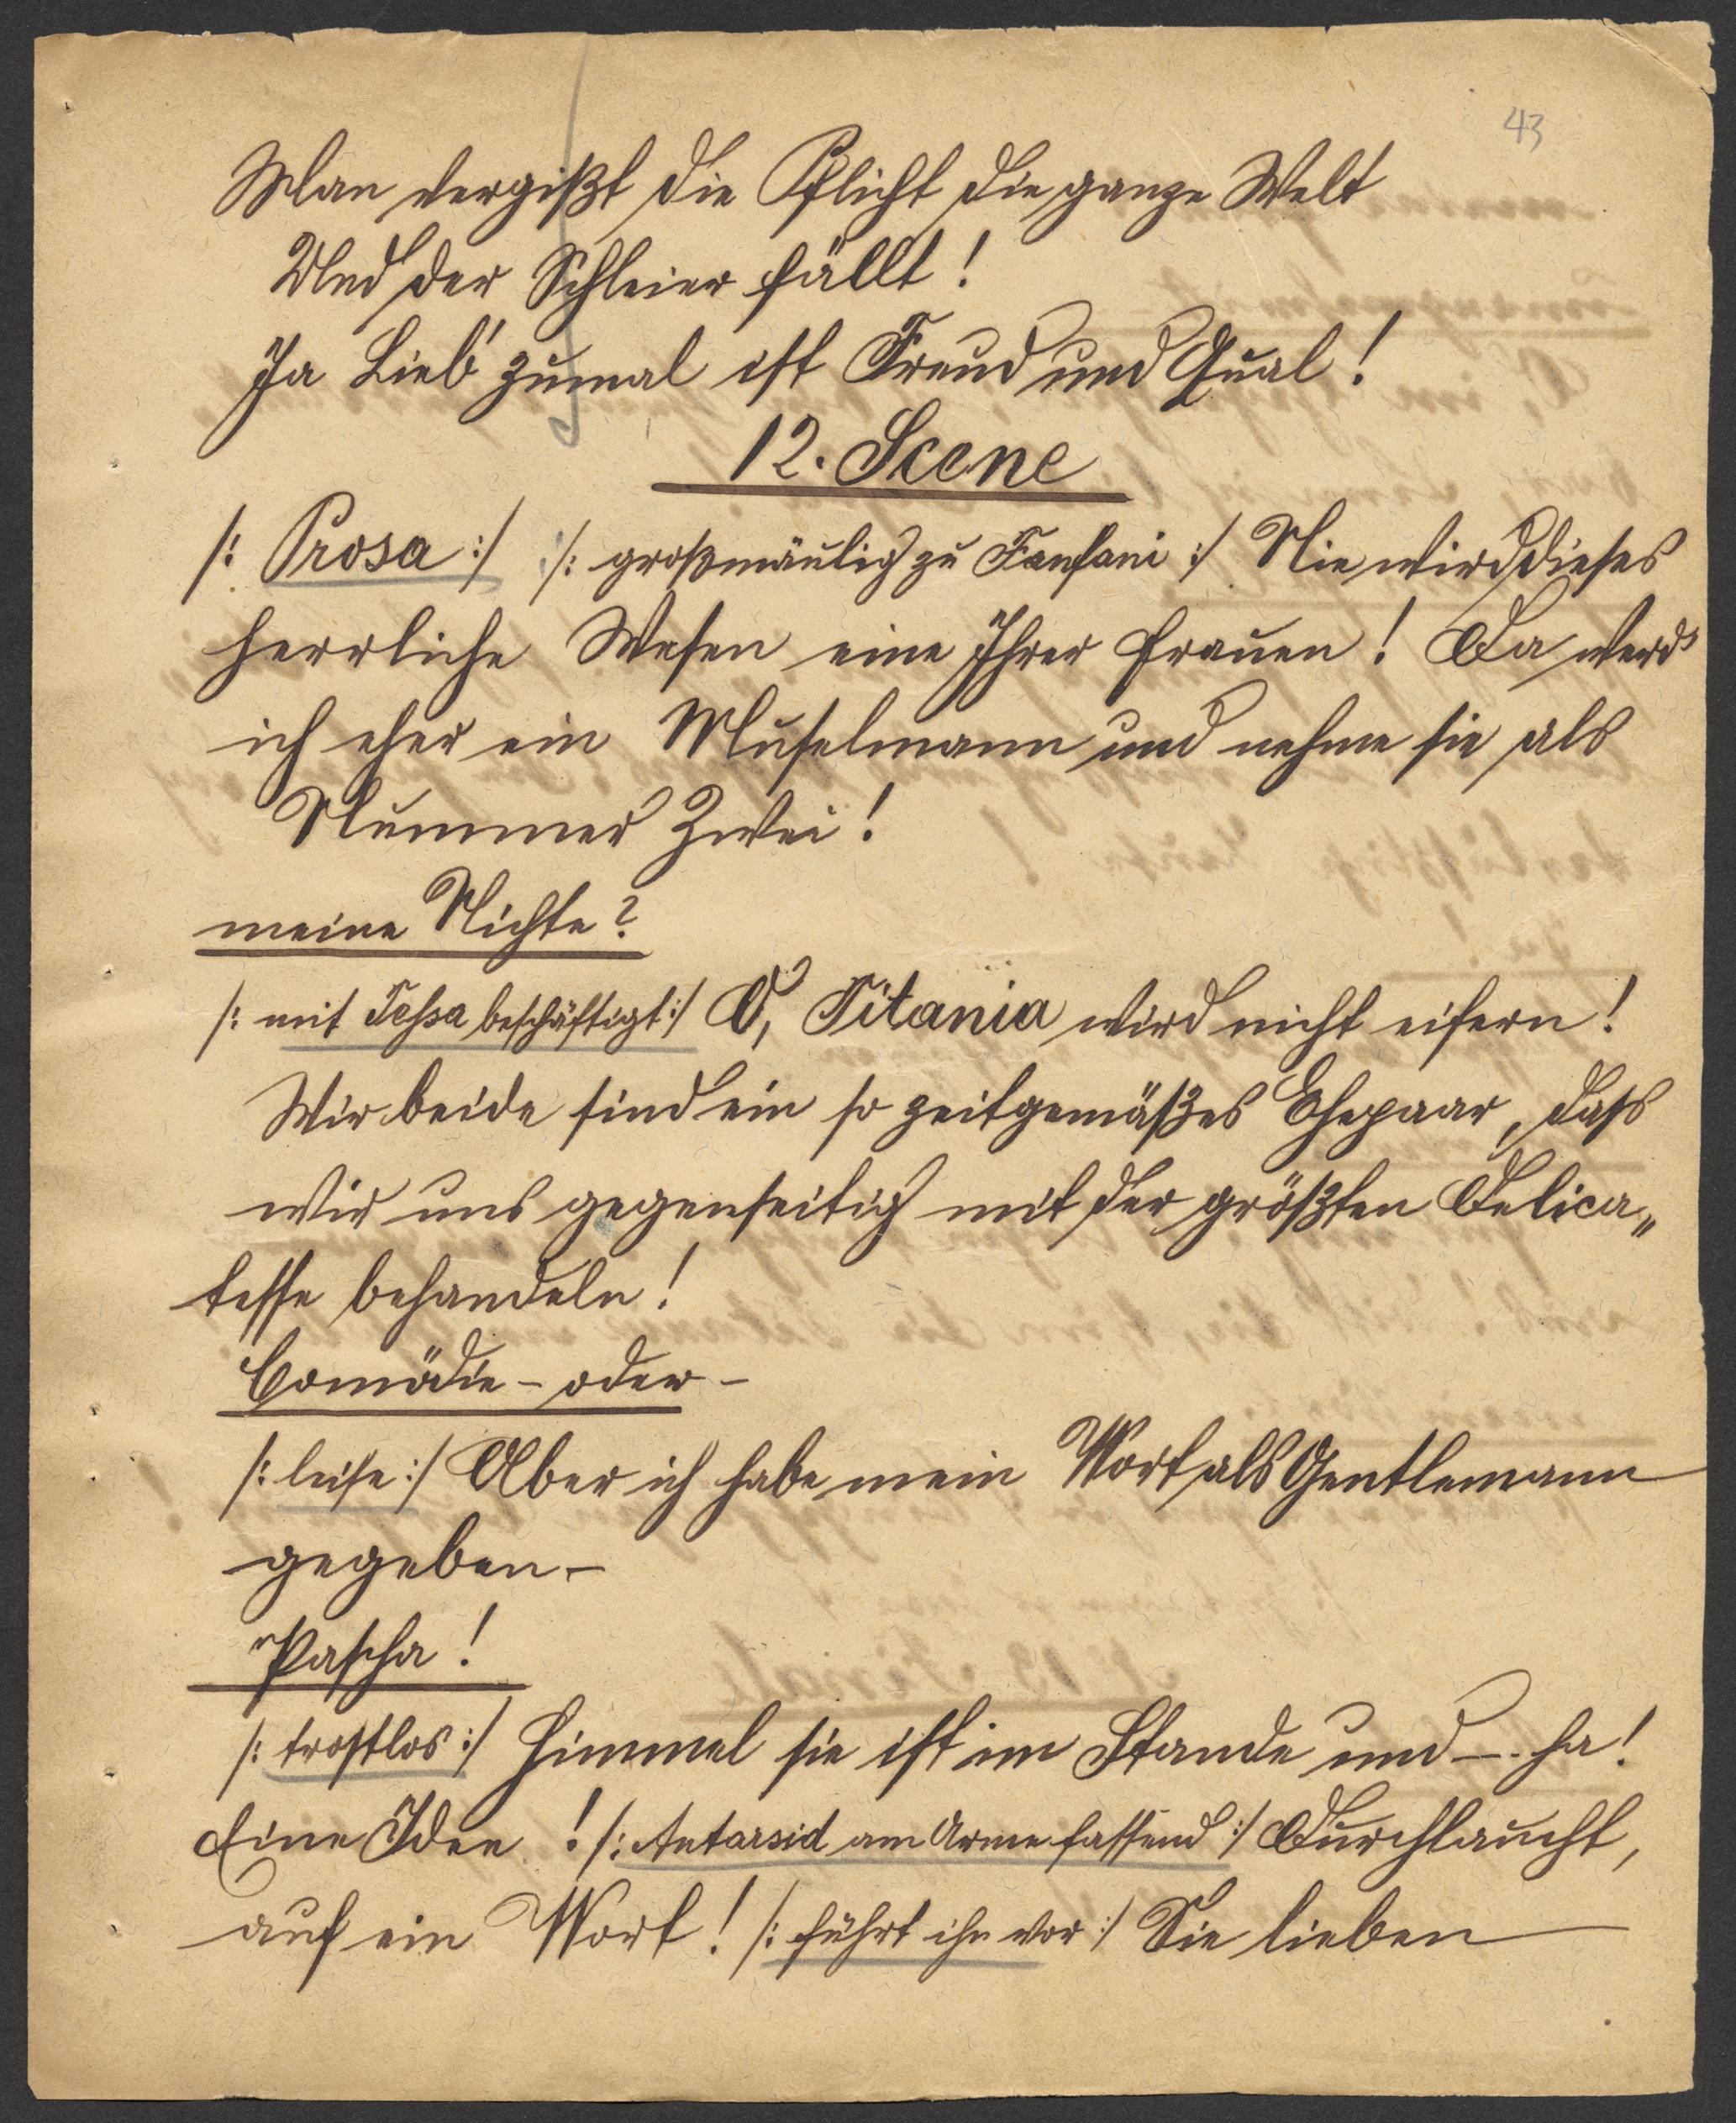 43
Man vergißt die Pflicht die ganze Welt
Und der Schleier fällt!
Ja Lieb' zumal ist Freud und Qual!
12. Scene
/: Prosa :/ /: großmäulig zu Fanfani :/ Nie wird dieses
herrliche Wesen eine Ihrer Frauen! Da werd'
ich eher ein Muselmann und nehme sie als
Nummer Zwei!
meine Nichte?
/: mit Tessa beschäftigt :/ O, Titania wird nicht eifern!
Wir beide sind ein so zeitgemäßes Ehepaar, dass
wir uns gegenseitig mit der größten Delica„
tesse behandeln!
Comödie - oder -
/: leise :/ Aber ich habe mein Wort als Gentlemann
gegeben -
Pascha!
/: trostlos :/ Himmel sie ist im Stande und -. ha!
Eine Idee ! /: Antarsid am Arme fassend :/ Durchlaucht,
auf ein Wort! /: führt ihn vor :/ Sie lieben